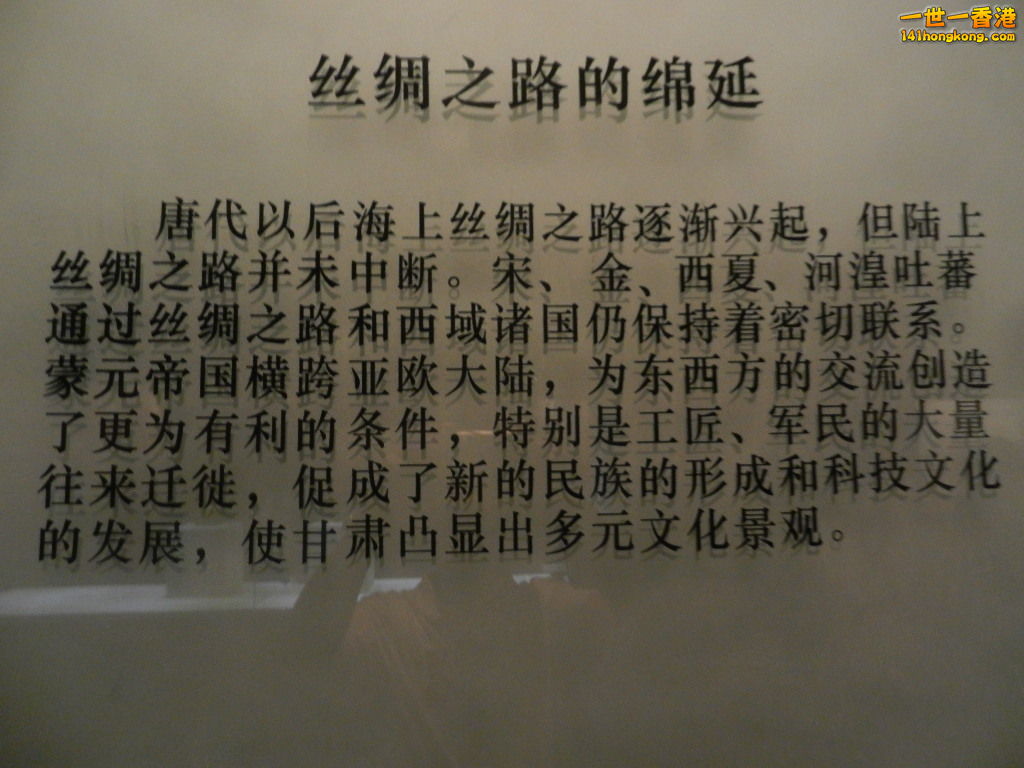 一世一香港
141hongkong.com
丝绸之路的绵延
唐代以后海上丝绸之路逐渐兴起，但陆上
丝绸之路并未中断。宋、金、西夏、河湟吐蕃
通过丝绸之路和西域诸国仍保持着密切联系。
蒙元帝国横跨亚欧大陆，为东西方的交流创造
了更为有利的条件，特别是工匠、军民的大量
往来迁徙，促成了新的民族的形成和科技文化
的发展，使甘肃凸显出多元文化景观。